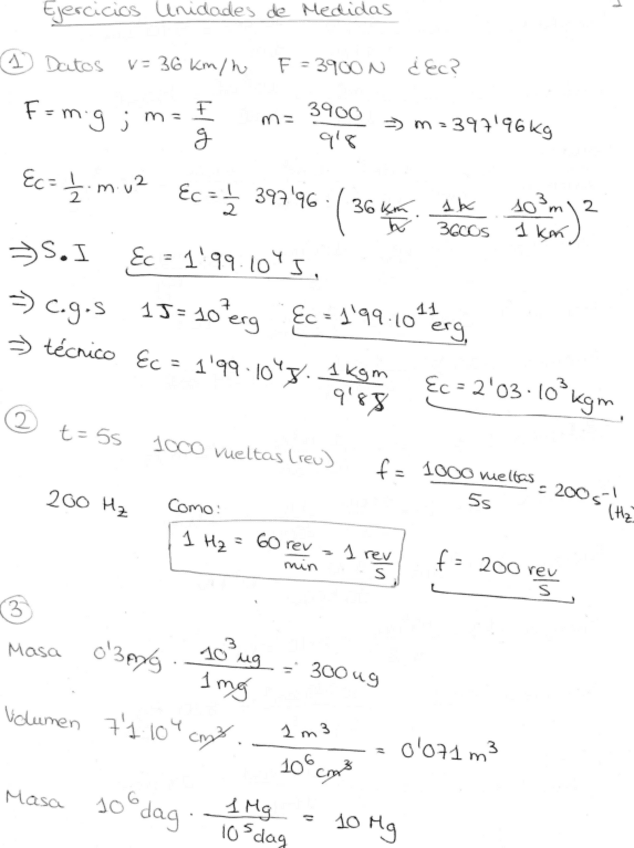 Ejercicios Unidades de Medidas
① Datos v = 36 Km/h F = 3900 N ¿Ec?
F = m·g ; m = F/g m = 3900/9'8 ⇒ m = 397'96 kg
Ec = 1/2 · m · v² Ec = 1/2 397'96 · (36 Km/h · 1h/3600s · 10³m/1 Km)²
⇒ S.I Ec = 1'99·10⁴ J.
⇒ c.g.s 1J = 10⁷ erg Ec = 1'99·10¹¹ erg.
⇒ técnico Ec = 1'99·10⁴ J · 1 kgm/9'8 J Ec = 2'03·10³ kgm.
② t = 5s 1000 vueltas (rev) f = 1000 vueltas/5s = 200 s⁻¹ (Hz)
200 Hz Como:
1 Hz = 60 rev/min = 1 rev/s f = 200 rev/s.
③
Masa 0'3 mg · 10³ ug/1 mg = 300 ug
Volumen 7'1·10⁴ cm³ · 1 m³/10⁶ cm³ = 0'071 m³
Masa 10⁶ dag · 1 Mg/10⁵ dag = 10 Mg